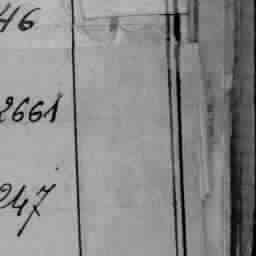 46
2661
247